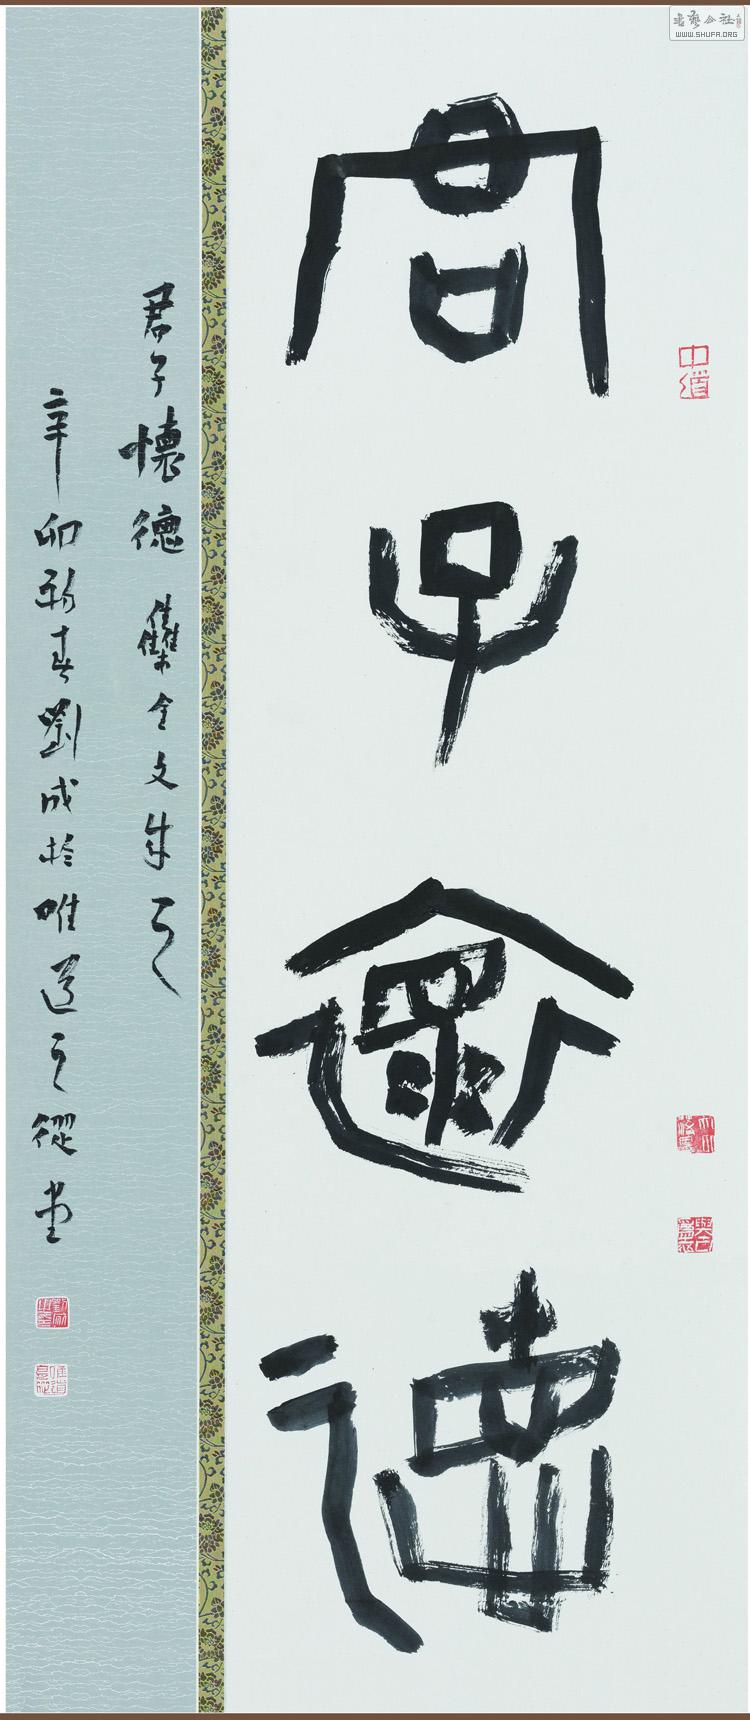 君子懷德
君子懷德 集金文朱之
辛卯新春劉成於唯道之從堂
中道
WWW.SHUFA.ORG